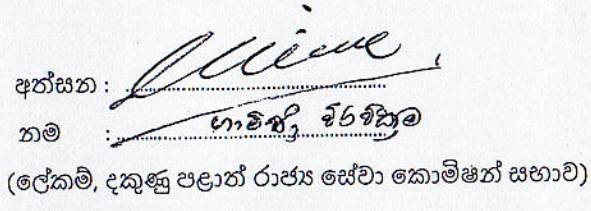 අත්සන :
නම : ගාමිණී වීරවික්‍රම
(ලේකම්, දකුණු පළාත් රාජ්‍ය සේවා කොමිෂන් සභාව)